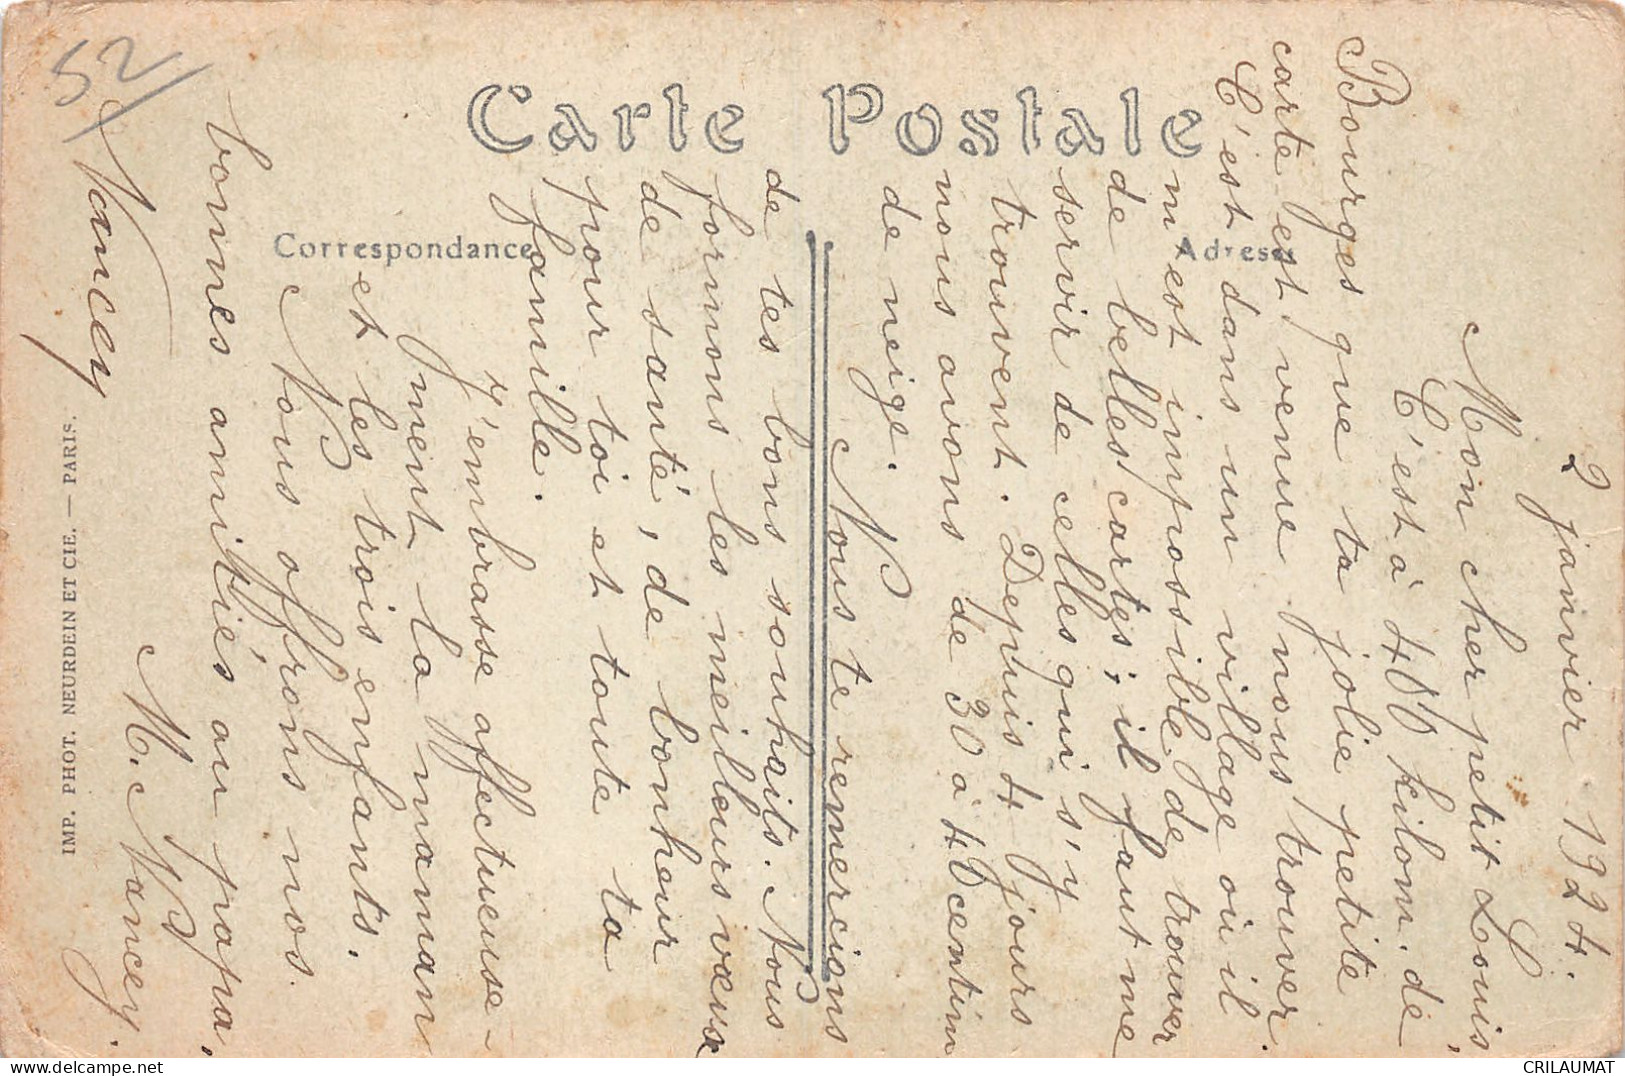 52
Carte Postale
Correspondance
Adresse
2 janvier 1924.
Mon cher petit Louis,
C'est à 400 kilom. de
Bourges que ta jolie petite
carte est venue nous trouver.
C'est dans un village où il
m'est impossible de trouver
de belles cartes; il faut me
servir de celles qui s'y
trouvent. Depuis 4 jours
nous avons de 30 à 40 centim
de neige.
Nous te remercions
de tes bons souhaits. Nous
formons les meilleurs vœux
de santé, de bonheur
pour toi et toute ta
famille.
J'embrasse affectueuse-
ment la maman
et les trois enfants.
Nous offrons nos
bonnes amitiés au papa,
M. Nancey.
Nancey
IMP. PHOT. NEURDEIN ET CIE. — PARIS.
CRILAUMAT